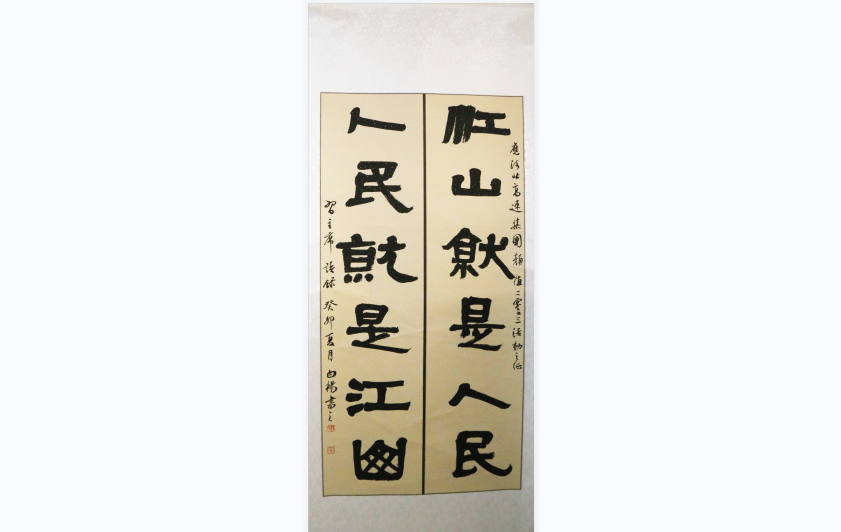 應河北高速集團顏值二零二三活動之
江山就是人民
人民就是江山
習主席語錄 癸卯夏月 白楊書之